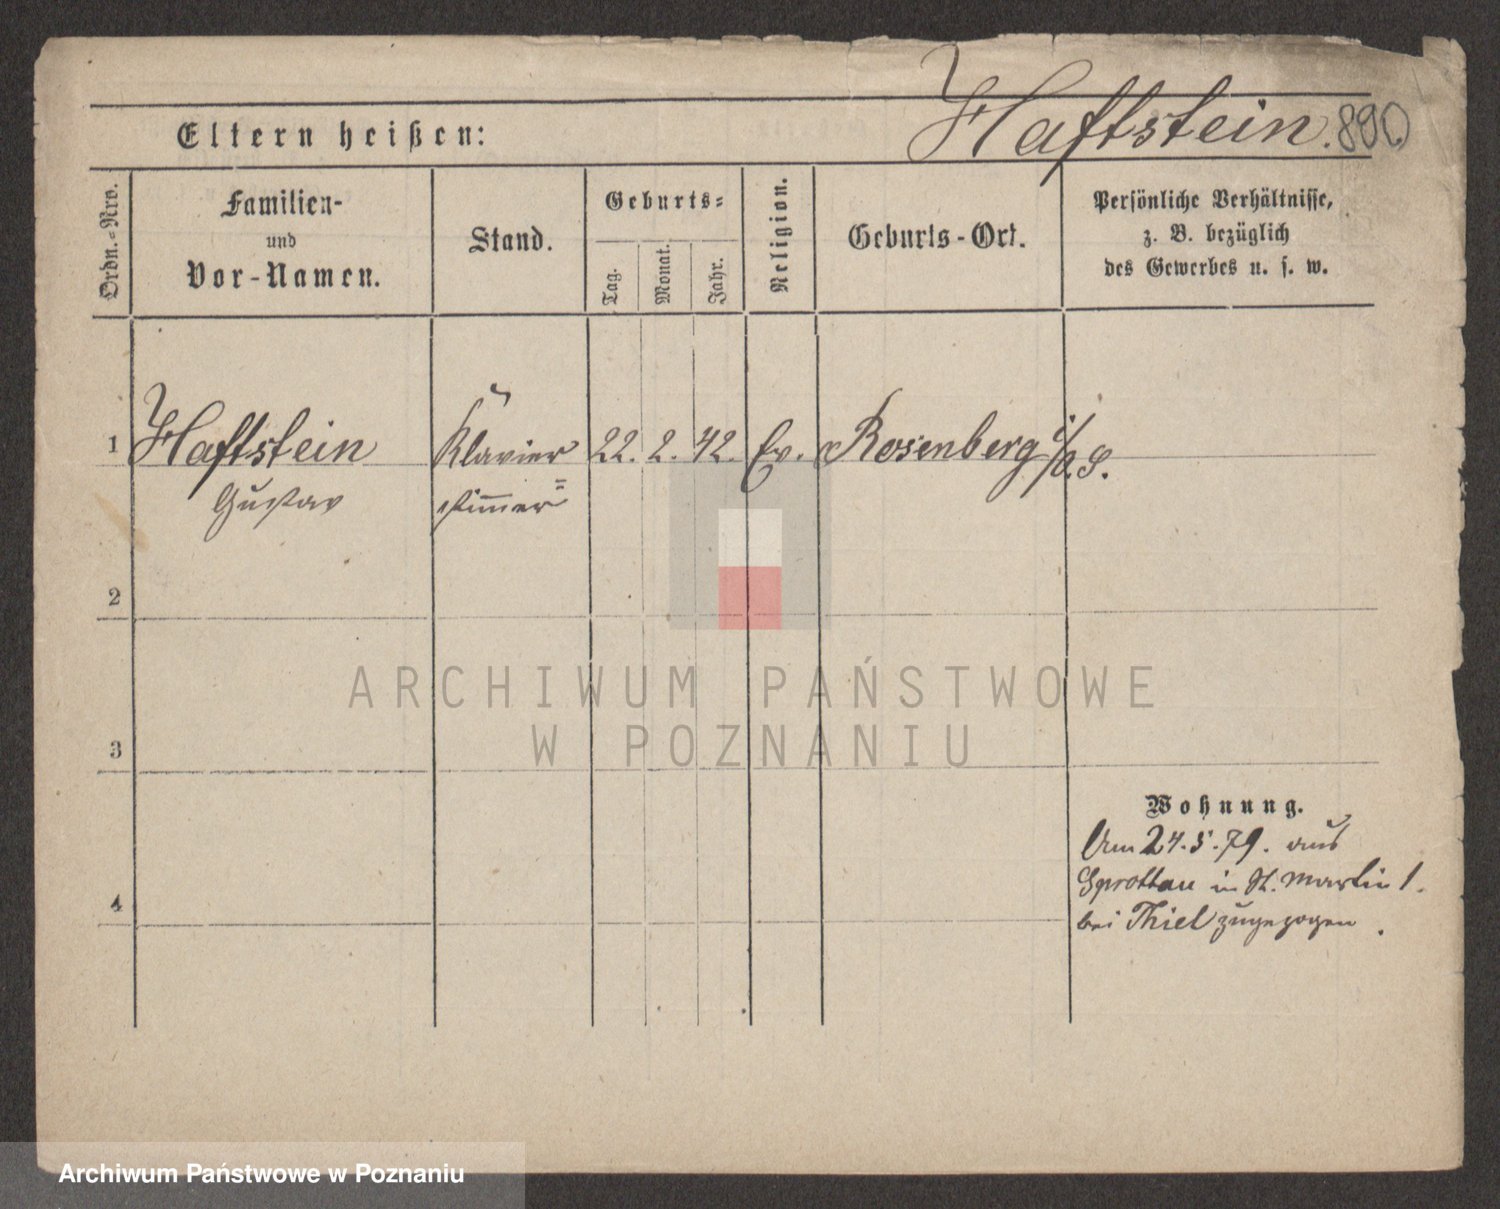 Haftstein. 890
Eltern heißen:
Ordn.-Nro.
Familien-
und
Vor-Namen.
Stand.
Geburts-
Tag.
Monat.
Jahr.
Religion.
Geburts-Ort.
Persönliche Verhältnisse,
z. B. bezüglich
des Gewerbes u. s. w.
1 Haftstein Klavier 22. 2. 42. Ev. Rosenberg i/O.S.
Gustav stimmer
2
3
4
Wohnung.
Am 24.5.79. aus
Sprottau in St. Martin 1.
bei Thiel zugezogen.
ARCHIWUM PAŃSTWOWE
W POZNANIU
Archiwum Państwowe w Poznaniu